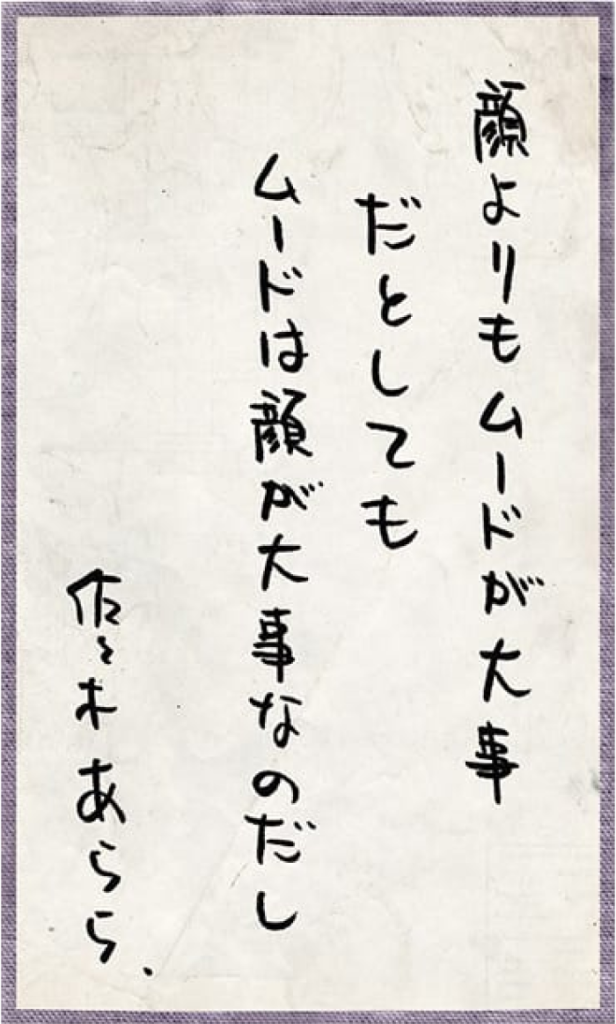 顔よりもムードが大事
だとしても
ムードは顔が大事なのだし
佐々木あらら.